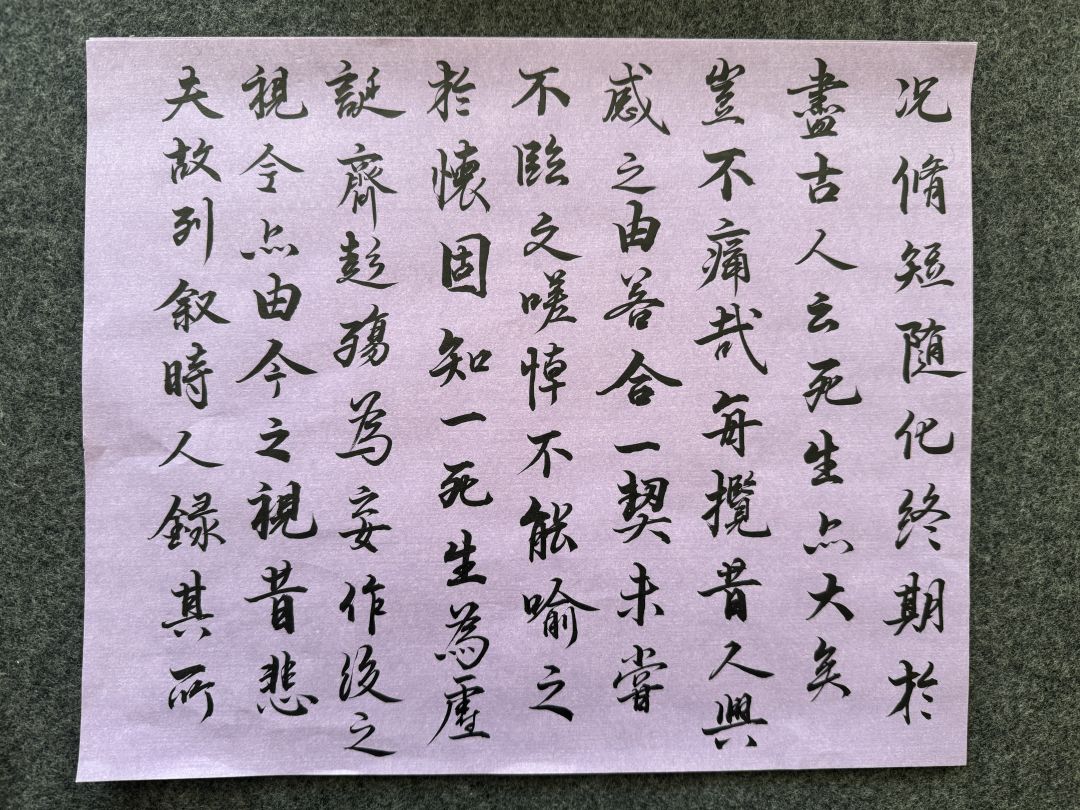 况脩短随化终期於
盡古人云死生亦大矣
豈不痛哉每攬昔人興
感之由若合一契未嘗
不臨文嗟悼不能喻之
於懷固知一死生為虛
誕齊彭殤為妄作後之
視今亦由今之視昔悲
夫故列叙時人錄其所